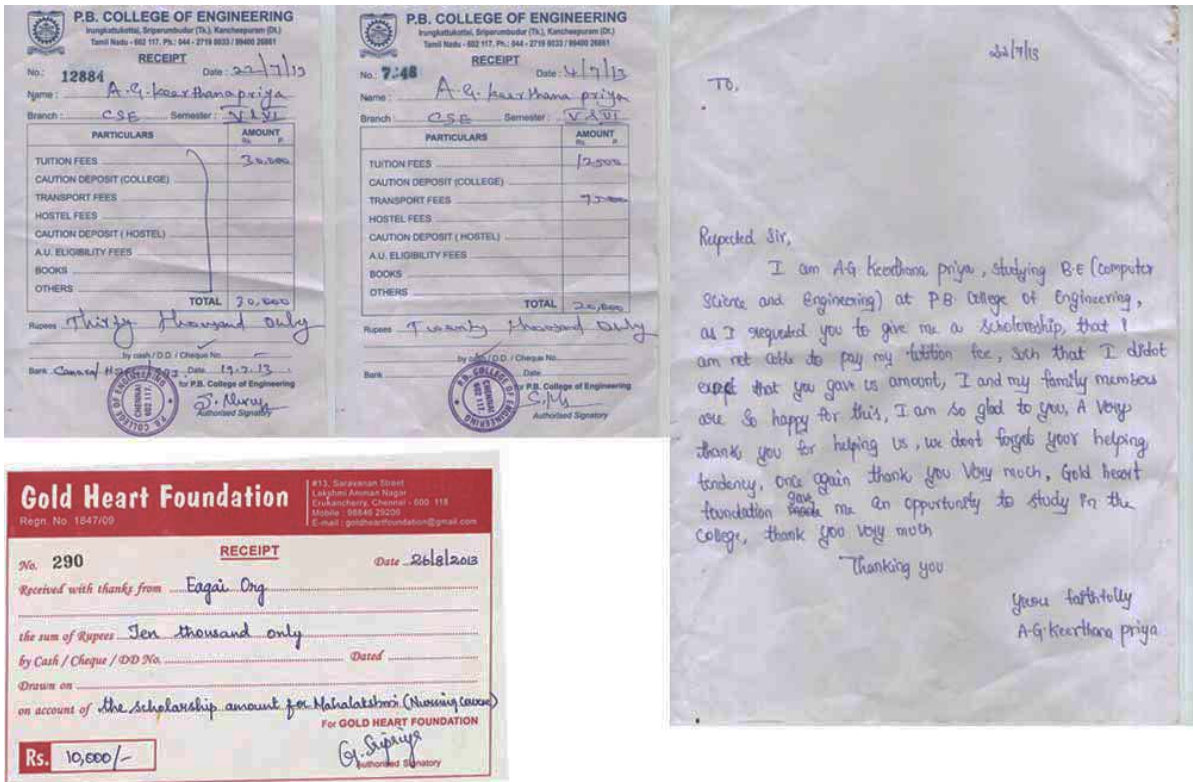 P.B. COLLEGE OF ENGINEERING
Irungkattukottai, Sriperumbudur (Tk.), Kancheepuram (Dt.)
Tamil Nadu - 602 117. Ph.: 044 - 2719 8033 / 99400 26861
RECEIPT
No.: 12884 Date: 22/7/13
Name: A.G. Keerthana priya
Branch: CSE Semester: V & VI
PARTICULARS AMOUNT
Rs. P.
TUITION FEES 30,000
CAUTION DEPOSIT (COLLEGE)
TRANSPORT FEES
HOSTEL FEES
CAUTION DEPOSIT (HOSTEL)
A.U. ELIGIBILITY FEES
BOOKS
OTHERS
TOTAL 30,000
Rupees Thirty thousand Only
by cash / D.D. / Cheque No.
Bank Canara Date 19.7.13
for P.B. College of Engineering
Authorised Signatory
P.B. COLLEGE OF ENGINEERING
CHENNAI
602 117
P.B. COLLEGE OF ENGINEERING
Irungkattukottai, Sriperumbudur (Tk.), Kancheepuram (Dt.)
Tamil Nadu - 602 117. Ph.: 044 - 2719 8033 / 99400 26861
RECEIPT
No.: Date: 4/7/13
Name: A.G. Keerthana priya
Branch: CSE Semester: V & VI
PARTICULARS AMOUNT
Rs. P.
TUITION FEES 12500
CAUTION DEPOSIT (COLLEGE)
TRANSPORT FEES
HOSTEL FEES
CAUTION DEPOSIT (HOSTEL)
A.U. ELIGIBILITY FEES
BOOKS
OTHERS
TOTAL 20,000
Rupees Twenty thousand Only
by cash / D.D. / Cheque No.
Bank Date
for P.B. College of Engineering
Authorised Signatory
P.B. COLLEGE OF ENGINEERING
CHENNAI
602 117
22/7/13
TO,
Respected Sir,
I am A.G Keerthana priya, studying B.E (computer
Science and Engineering) at P.B College of Engineering,
as I requested you to give me a scholorship, that I
am not able to pay my tutition fee, such that I didot
expect that you gave us amount, I and my family members
are so happy for this, I am so glad to you, A Very
thank you for helping us, we dont forget your helping
tendency, once again thank you Very much, Gold heart
foundation gave me an oppurtunity to study in the
College, thank you very moth
Thanking you
yours faithfully
A.G Keerthana priya
Gold Heart Foundation
Regn. No 1847/09
#13, Saravanan Street
Lakshmi Amman Nagar
Erukancherry, Chennai - 600 118
Mobile : 98846 29200
E-mail : goldheartfoundation@gmail.com
RECEIPT
No. 290 Date 26/8/2013
Received with thanks from Eagai Org
the sum of Rupees Ten thousand only
by Cash / Cheque / DD No. Dated
Drawn on
on account of the scholarship amount for Mahalakshmi (Nursing course)
For GOLD HEART FOUNDATION
G. Sripriya
Authorised Signatory
Rs. 10,000/-